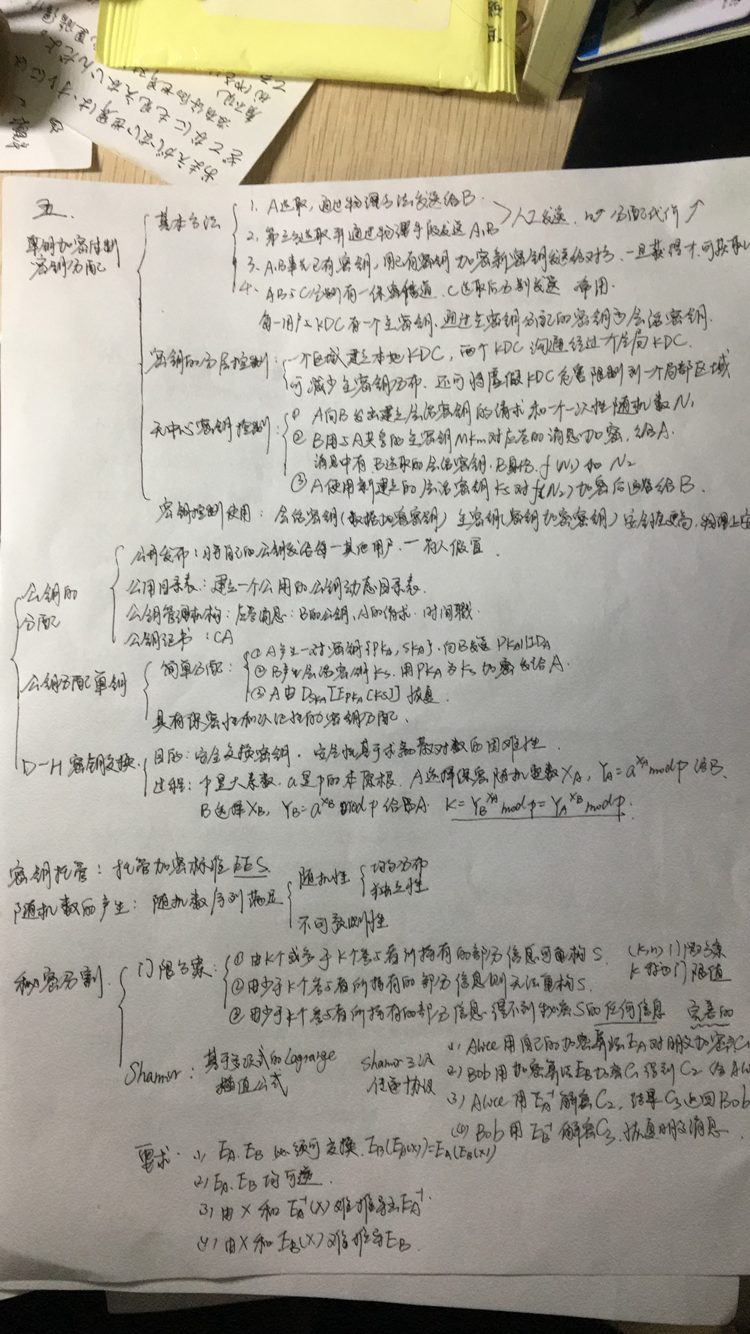 五、
单钥加密体制
密钥分配
基本方法
1. A选取,通过物理方法发送给B.
2. 第三方选取并通过物理手段发送A.B
人工发送
分配代价↑
3. A.B事先已有密钥,用已有密钥加密新密钥发送给对方.一旦获得才,可获取
4. AB与C分别有一保密信道.C选取后分别发送 常用.
每一用户与KDC有一个主密钥.通过主密钥分配的密钥为会话密钥.
密钥的分层控制:
一个区域建立本地KDC,两个KDC沟通经过个全局KDC.
可减少主密钥分布.还可将虚假KDC危害限制到一个局部区域
无中心密钥控制:
① A向B发出建立会话密钥的请求和个一次性随机数N₁
② B用与A共享的主密钥MKm对应答的消息加密,给A.
消息中有B选取的会话密钥.B身份.f(N₁)和N₂
③ A使用新建立的会话密钥Ks对f(N₂)加密后返回给B.
密钥控制使用: 会话密钥(数据加密密钥) 主密钥(密钥加密密钥) 安全性更高,物理上
公钥的
分配
公开发布:将自己的公钥发给每一其他用户.一有人假冒.
公用目录表:建立一个公用的公钥动态目录表.
公钥管理机构:应答消息:B的公钥,A的请求.时间戳.
公钥证书:CA
公钥分配单钥
简单分配:
① A产生一对密钥{PKA, SKA}.向B发送 PKA||IDA
② B产生会话密钥Ks.用PKA为Ks加密发给A.
③ A由DSKA[EPKA[KS]]恢复.
具有保密性和认证性的密钥分配.
D-H密钥交换.
目的:安全交换密钥.安全性基于求离散对数的困难性.
过程: p是大素数.a是p的本原根.A选择保密随机整数XA, YA=a^XA mod p 给B.
B选择XB, YB=a^XB mod p 给A. K=YB^XA mod p=YA^XB mod p.
密钥托管: 托管加密标准EES.
随机数的产生: 随机数序列满足
随机性
均匀分布
独立性
不可预测性
秘密分割
门限方案:
① 由K个或多于K个参与者所持有的部分信息可重构S.
(k,n)门限方案
K称为门限值
② 由少于K个参与者所持有的部分信息则无法重构S.
③ 由少于K个参与者所持有的部分信息得不到秘密S的任何信息 完善的
Shamir: 基于多项式的Lagrange
插值公式
Shamir
协议
1) Alice用自己的加密算法EA对明文加密
2) Bob用加密算法EB加密C₁得到C₂
3) Alice用EA⁻¹解密C₂,结果C₃返回Bob
4) Bob用EB⁻¹解密C₃,恢复明文消息.
要求: 1) EA.EB必须可交换.EB(EA(x))=EA(EB(x))
2) EA.EB均可逆
3) 由X和EA⁻¹(X)难推导出EA⁻¹.
4) 由X和EB(X)难推导EB.